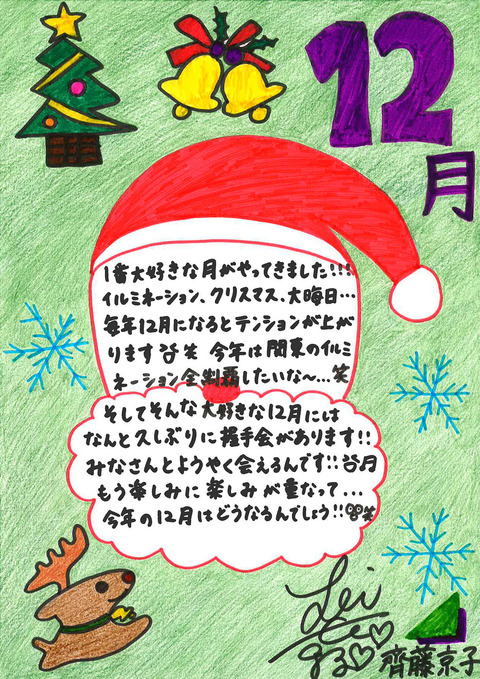 12
月
1番大好きな月がやってきました!!!
イルミネーション、クリスマス、大晦日…
毎年12月になるとテンションが上が
ります笑 今年は関東のイルミ
ネーション全制覇したいな〜…笑
そしてそんな大好きな12月には
なんと久しぶりに握手会があります!!
みなさんとようやく会えるんです!!
もう楽しみに楽しみが重なって…
今年の12月はどうなるんでしょう!!笑
齊藤京子